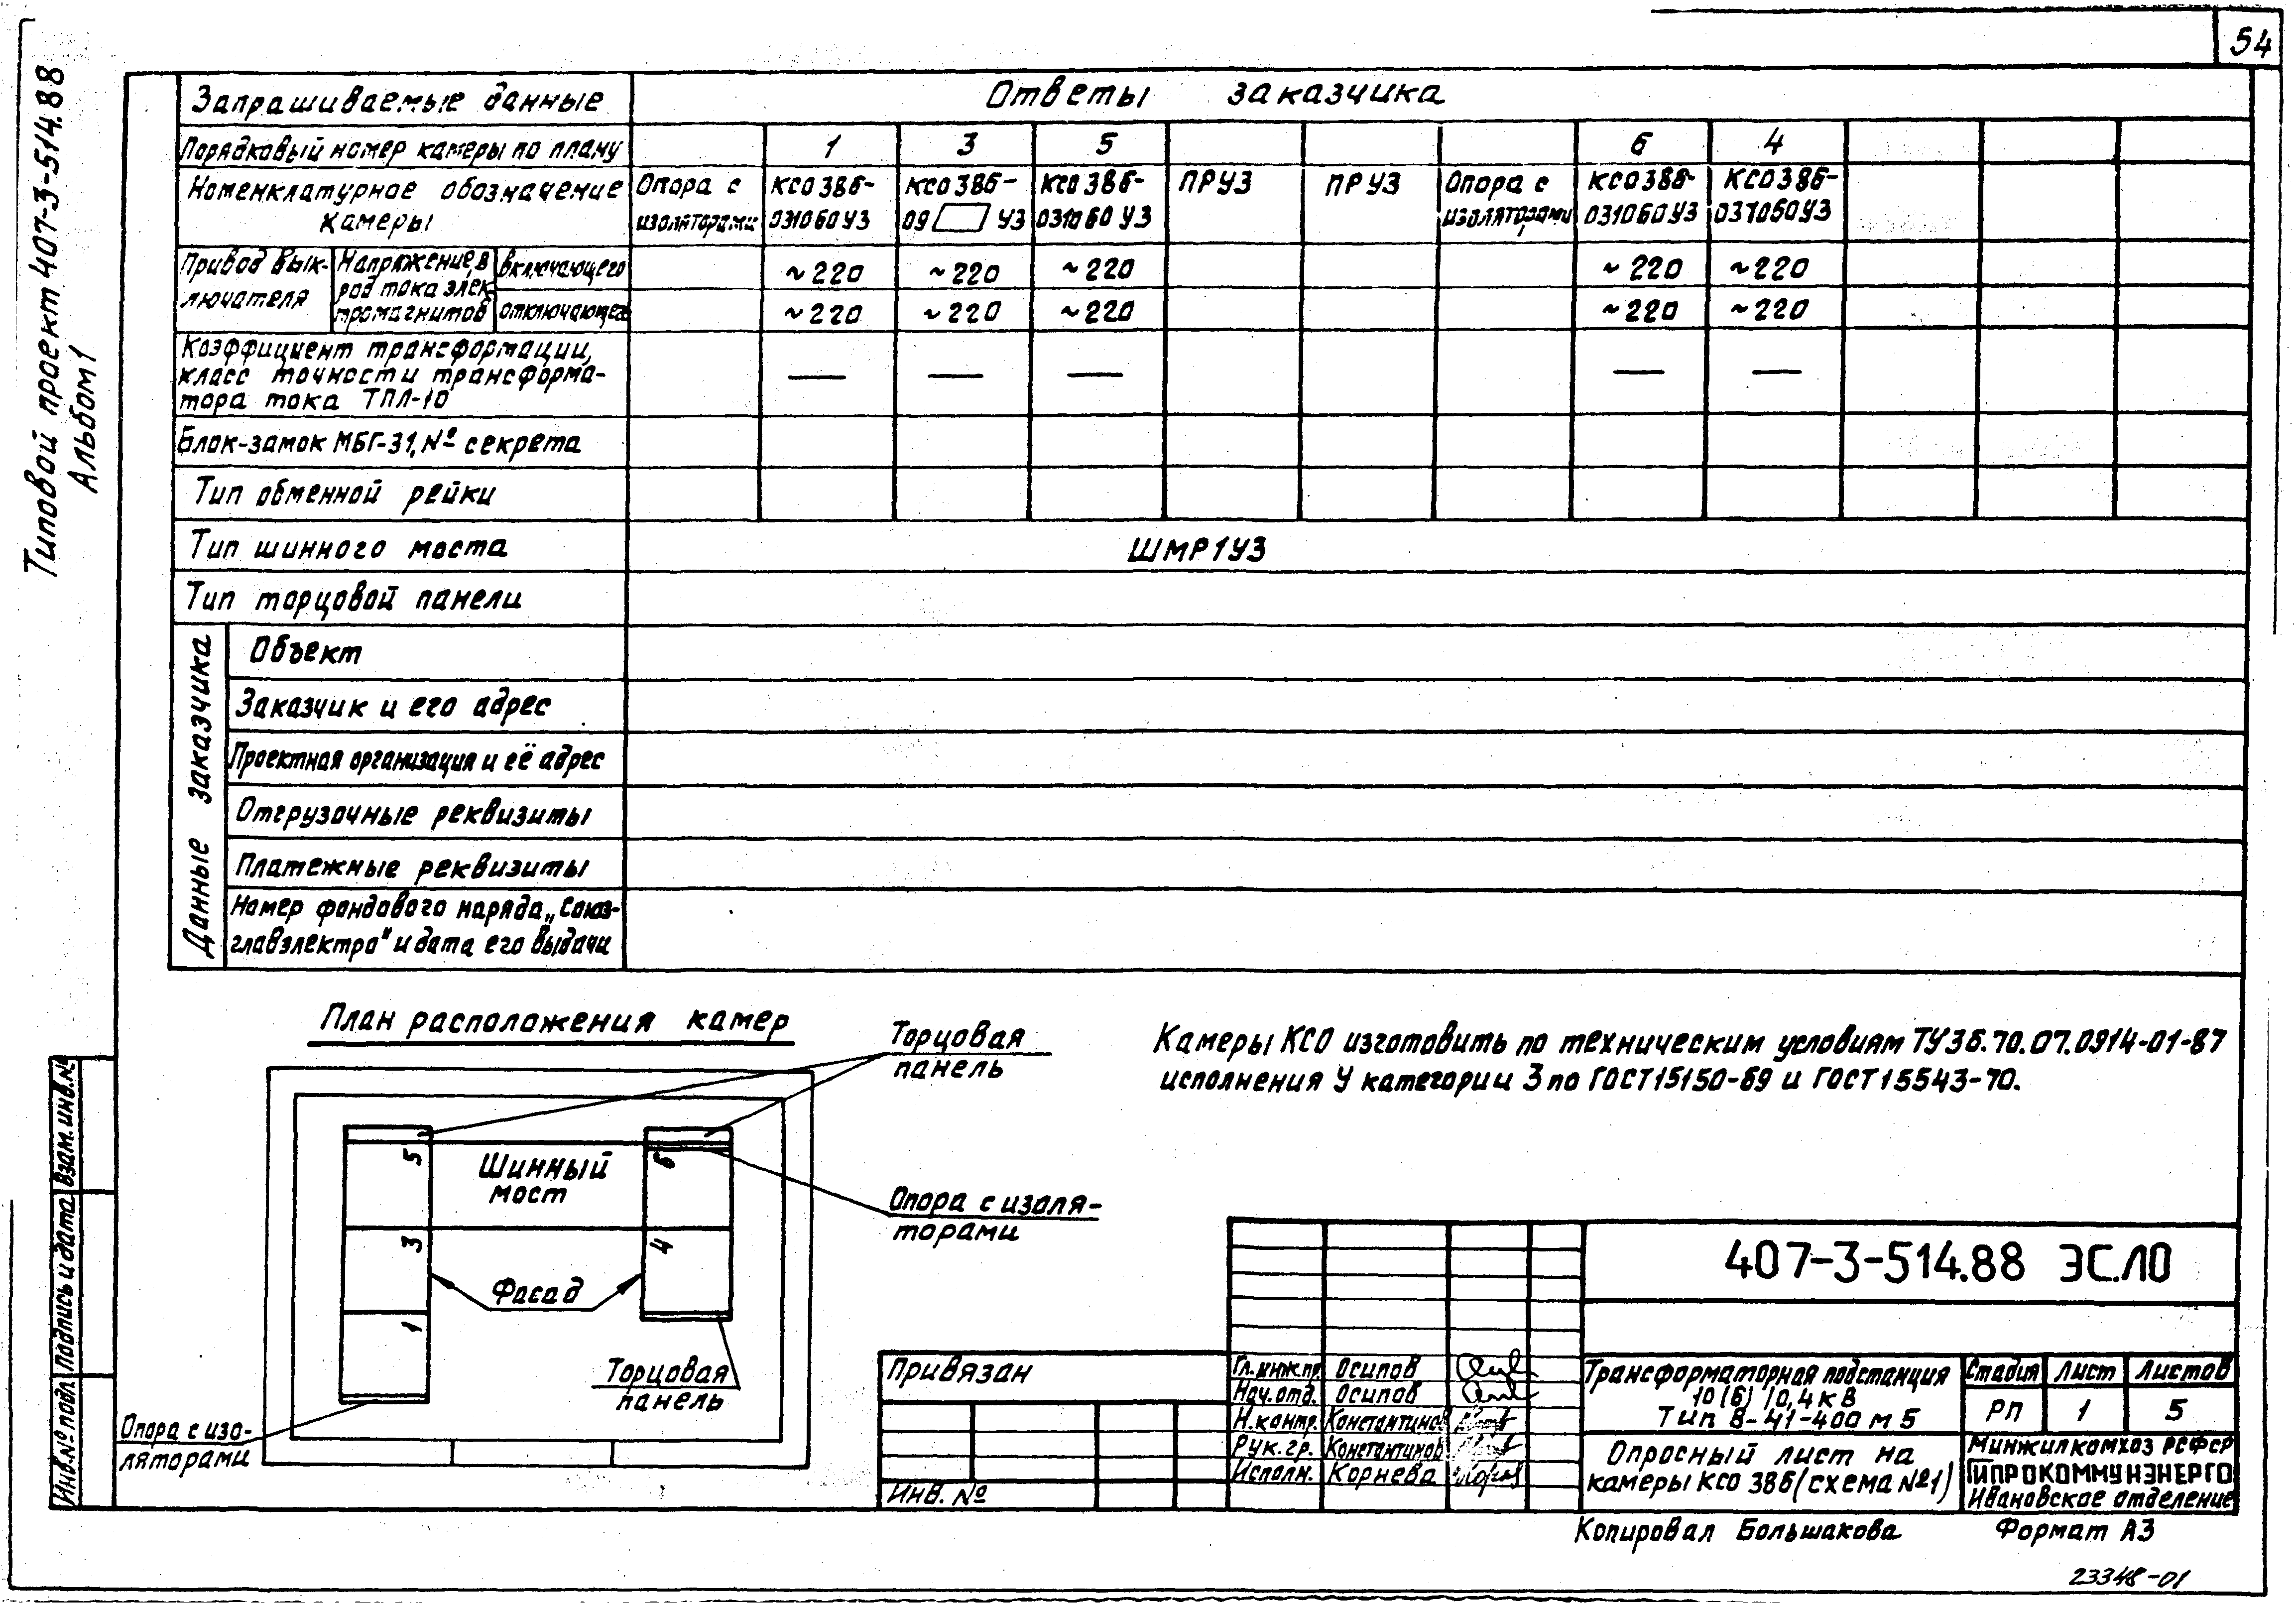 54
Типовой проект 407-3-514.88
Альбом 1
Запрашиваемые данные
Ответы заказчика
Порядковый номер камеры по плану
1 3 5 6 4
Номенклатурное обозначение
камеры
Опора с
изоляторами
КСО386-
031060У3
КСО386-
09 У3
КСО386-
031060У3
ПРУЗ
ПРУЗ
Опора с
изоляторами
КСО386-
031060У3
КСО386-
031050У3
Привод вык-
лючателя
Напряжение, в
род тока элек
тромагнитов
включающего
~220 ~220 ~220 ~220 ~220
отключающего
~220 ~220 ~220 ~220 ~220
Коэффициент трансформации,
класс точности трансформа-
тора тока ТПЛ-10
— — — — —
Блок-замок МБГ-31, № секрета
Тип обменной рейки
Тип шинного моста
ШМР1У3
Тип торцовой панели
Данные заказчика
Объект
Заказчик и его адрес
Проектная организация и её адрес
Отгрузочные реквизиты
Платежные реквизиты
Номер фондового наряда „Союз-
главэлектро" и дата его выдачи
План расположения камер
Торцовая
панель
5
Шинный
мост
6
Опора с изоля-
торами
3
4
Фасад
1
Торцовая
панель
Опора с изо-
ляторами
Камеры КСО изготовить по техническим условиям ТУ36.70.07.0914-01-87
исполнения У категории 3 по ГОСТ15150-69 и ГОСТ15543-70.
Взам. инв. №
Подпись и дата
Инв. № подл.
Привязан
Инв. №
407-3-514.88 ЭС.ЛО
Гл. инж. пр. Осипов
Нач. отд. Осипов
Н. контр. Константинов
Рук. гр. Константинов
Исполн. Корнева
Трансформаторная подстанция
10(6)/0,4 кВ
Тип В-41-400 м5
Стадия Лист Листов
РП 1 5
Опросный лист на
камеры КСО 386 (схема №1)
Минжилкомхоз РСФСР
ГИПРОКОММУНЭНЕРГО
Ивановское отделение
Копировал Большакова
Формат А3
23348-01